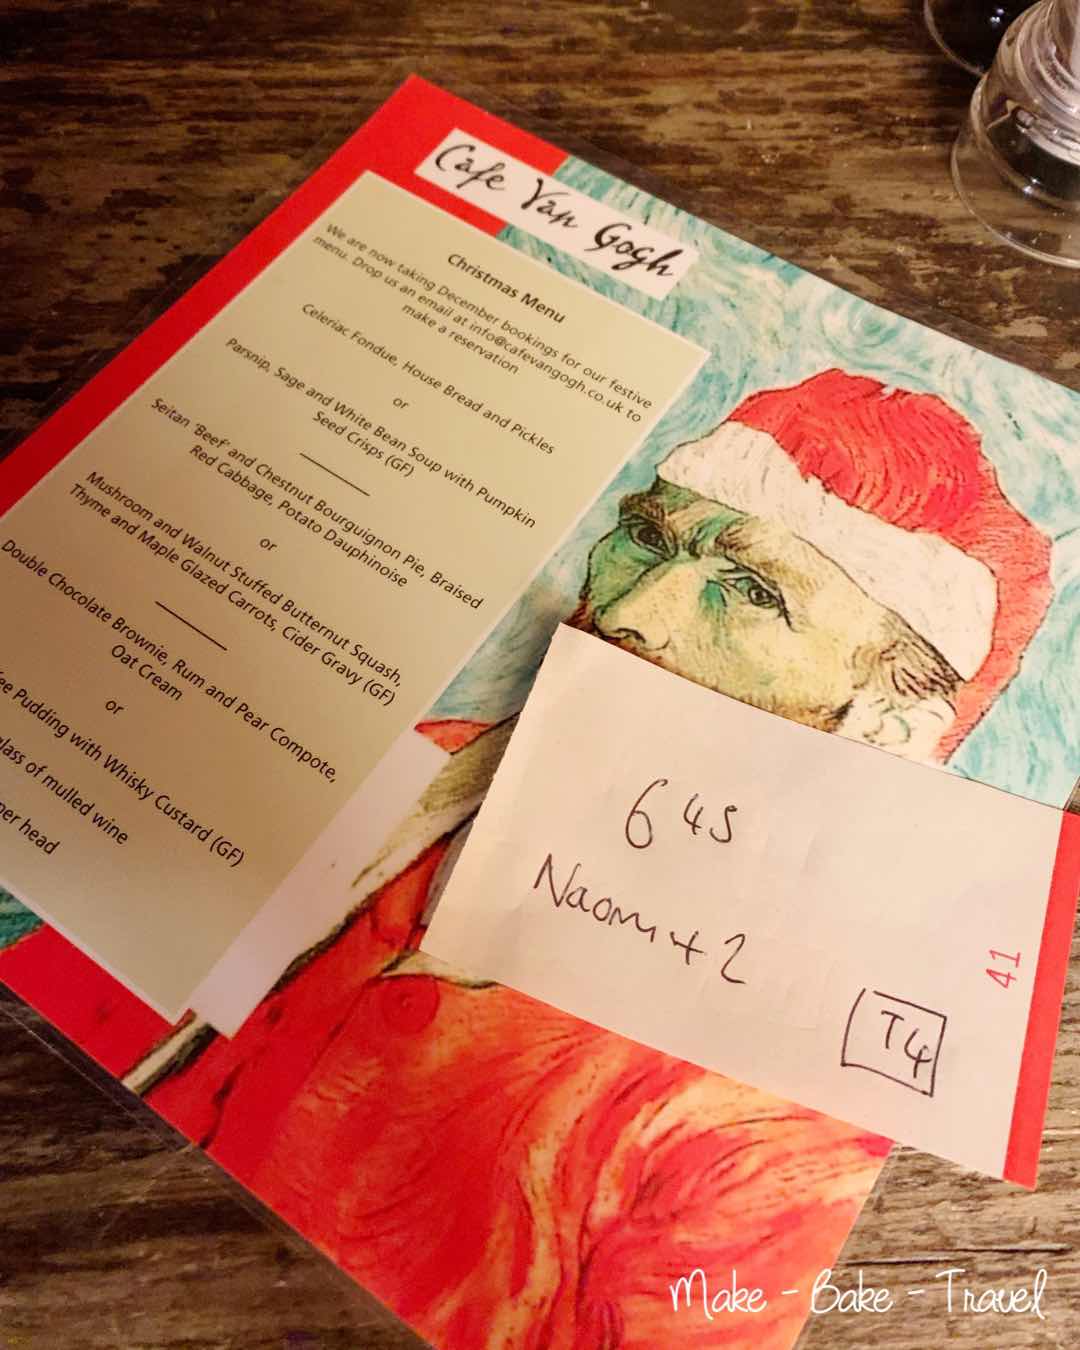 Cafe Van Gogh
Christmas Menu
We are now taking December bookings for our festive
menu. Drop us an email at info@cafevangogh.co.uk to
make a reservation
Celeriac Fondue, House Bread and Pickles
or
Parsnip, Sage and White Bean Soup with Pumpkin
Seed Crisps (GF)
Seitan 'Beef' and Chestnut Bourguignon Pie, Braised
Red Cabbage, Potato Dauphinoise
or
Mushroom and Walnut Stuffed Butternut Squash,
Thyme and Maple Glazed Carrots, Cider Gravy (GF)
Double Chocolate Brownie, Rum and Pear Compote,
Oat Cream
or
Pudding with Whisky Custard (GF)
glass of mulled wine
per head
6 45
Naomi + 2
T4
41
Make - Bake - Travel